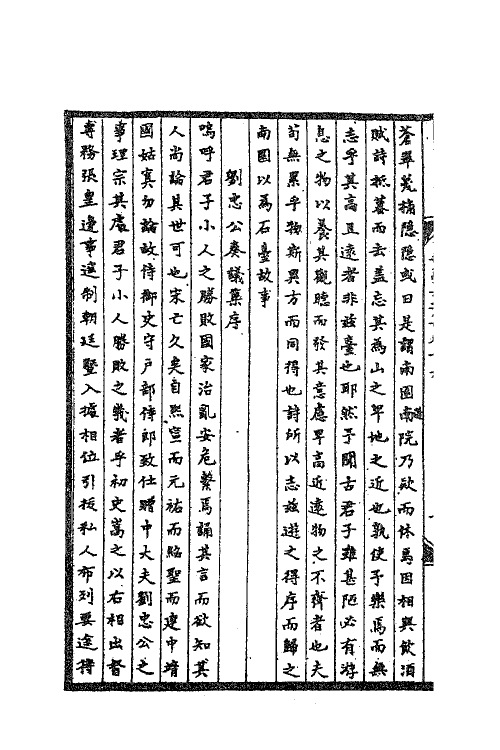 蒼翠羌楠隱隱或曰是謂南園南院乃欵而休焉因相與飲酒
賦詩抵暮而去蓋忘其為山之畀地之近也孰使予樂焉而無
志乎其高且遠者非兹臺也耶然予聞古君子雖甚陋必有游
息之物以養其觀聽而發其意慮畀高近遠物之不齊者也夫
茍無累乎物斯異方而同得也詩所以志兹遊之得序而歸之
南園以為石臺故事
劉忠公奏議藁序
嗚呼君子小人之勝敗國家治亂安危繫焉誦其言而欲知其
人尚論其世可也宋亡久矣自熙寧而元祐而紹聖而建中靖
國姑寘勿論故侍御史守戶部侍郎致仕贈中大夫劉忠公之
事理宗其處君子小人勝敗之幾者乎初史嵩之以右相出督
專務張皇邊事遥制朝廷暨入據相位引拔私人布列要途搏